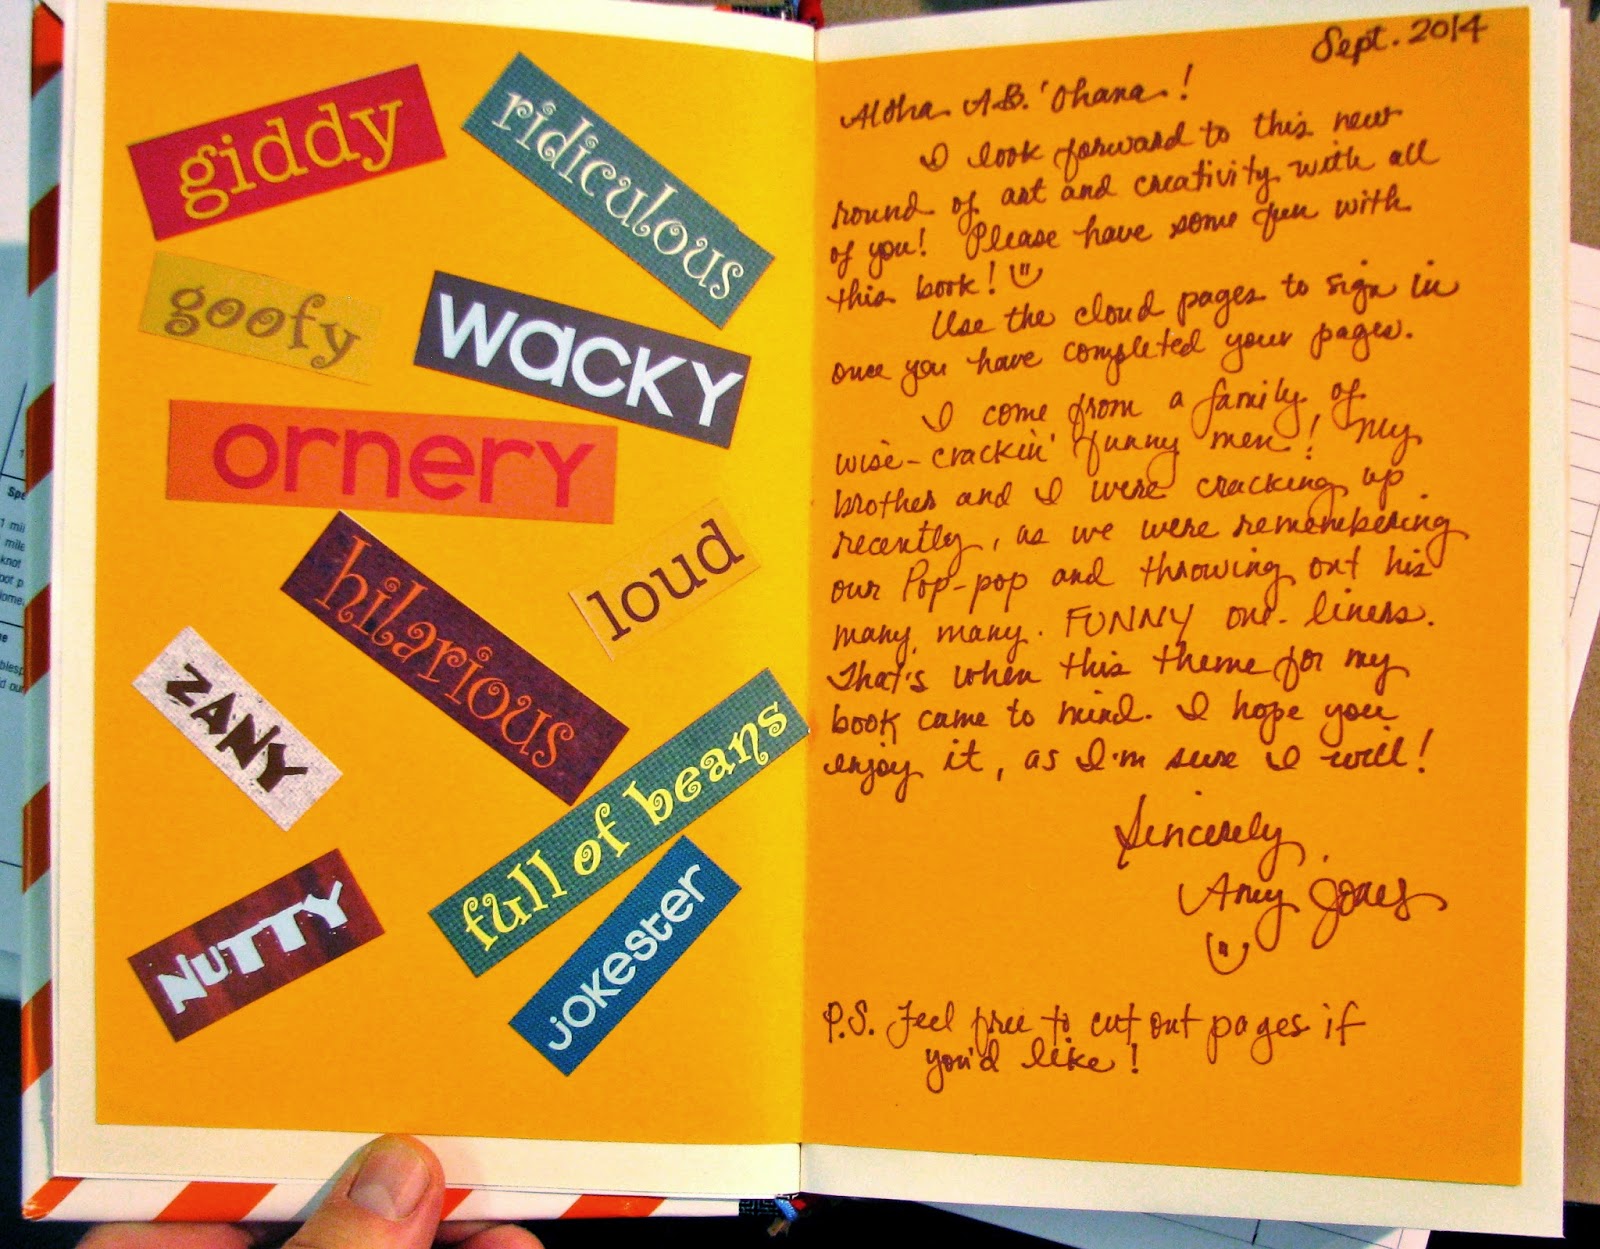 giddy
ridiculous
goofy
wacky
ornery
hilarious
loud
ZANY
full of beans
NUTTY
jokester
Sept. 2014
Aloha A.B. 'Ohana!
I look forward to this new
round of art and creativity with all
of you! Please have some fun with
this book!
Use the cloud pages to sign in
once you have completed your pages.
I come from a family of
wise-crackin' funny men! My
brother and I were cracking up
recently, as we were remembering
our Pop-pop and throwing out his
many, many. FUNNY one-liners.
That's when this theme for my
book came to mind. I hope you
enjoy it, as I'm sure I will!
Sincerely,
Amy Jones
P.S. Feel free to cut out pages if
you'd like!